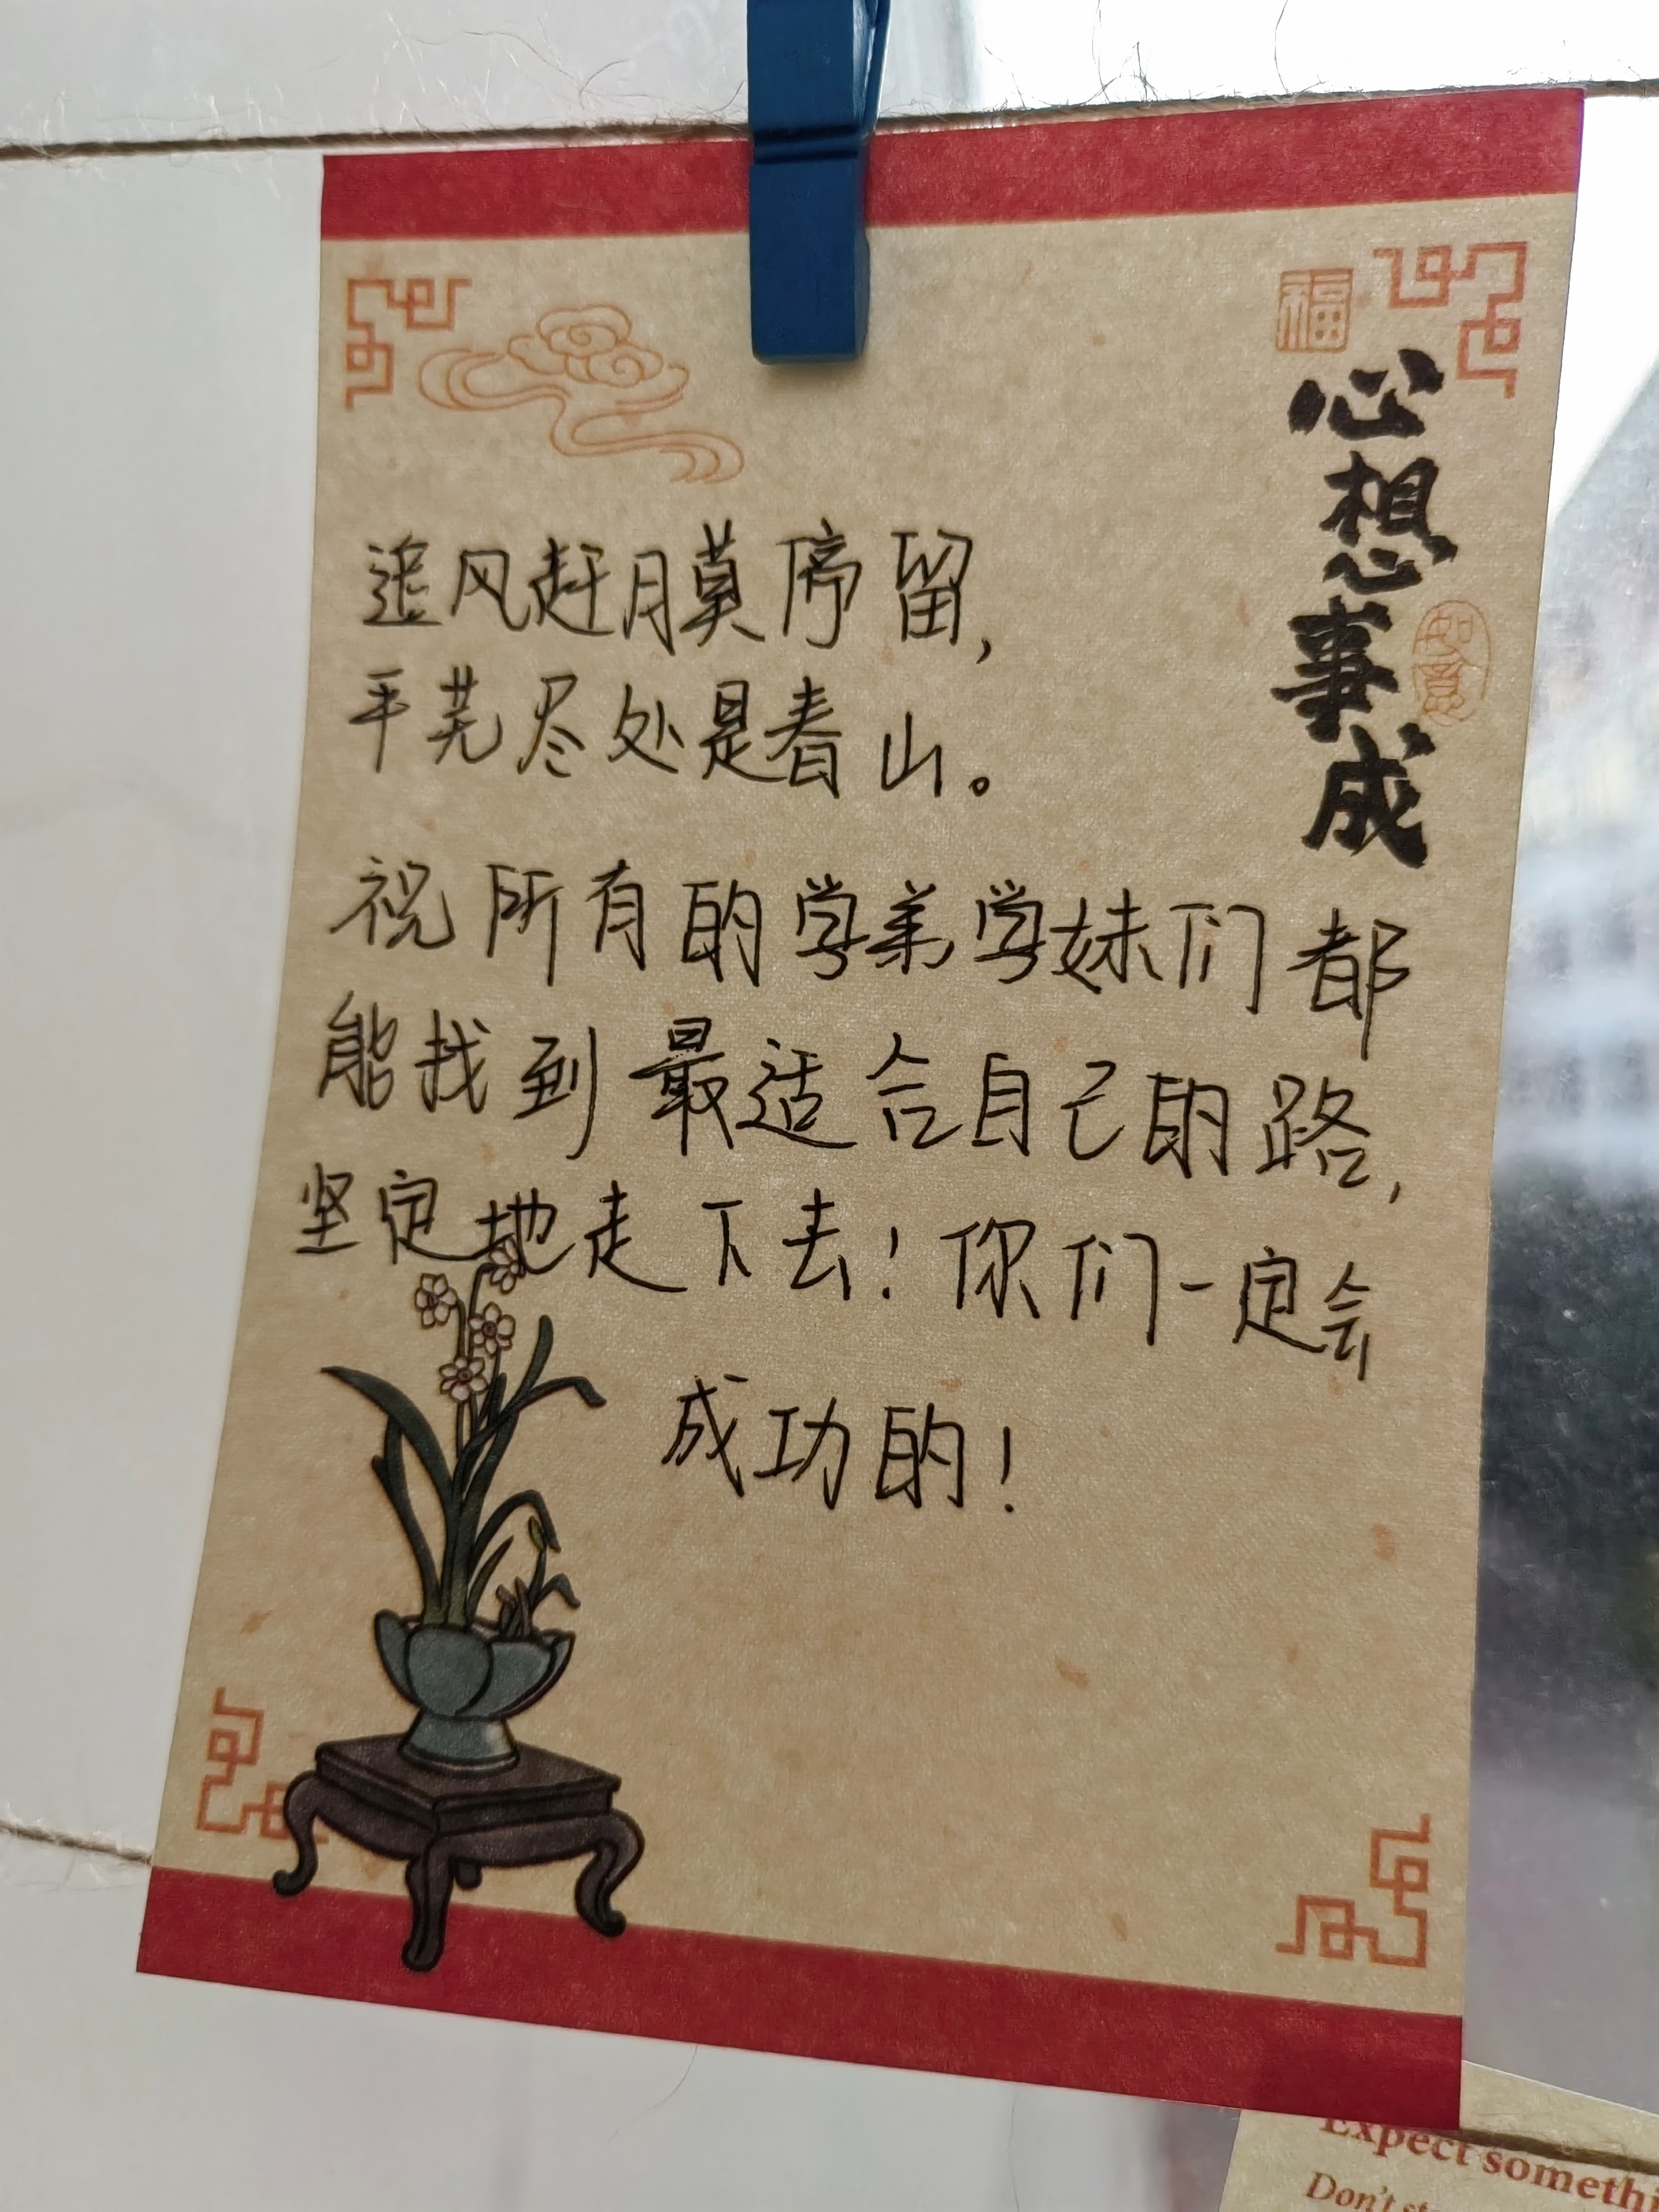 福
心想事成
如意
追风赶月莫停留，
平芜尽处是春山。
祝所有的学弟学妹们都
能找到最适合自己的路，
坚定地走下去！你们一定会
成功的！
Expect
Don't